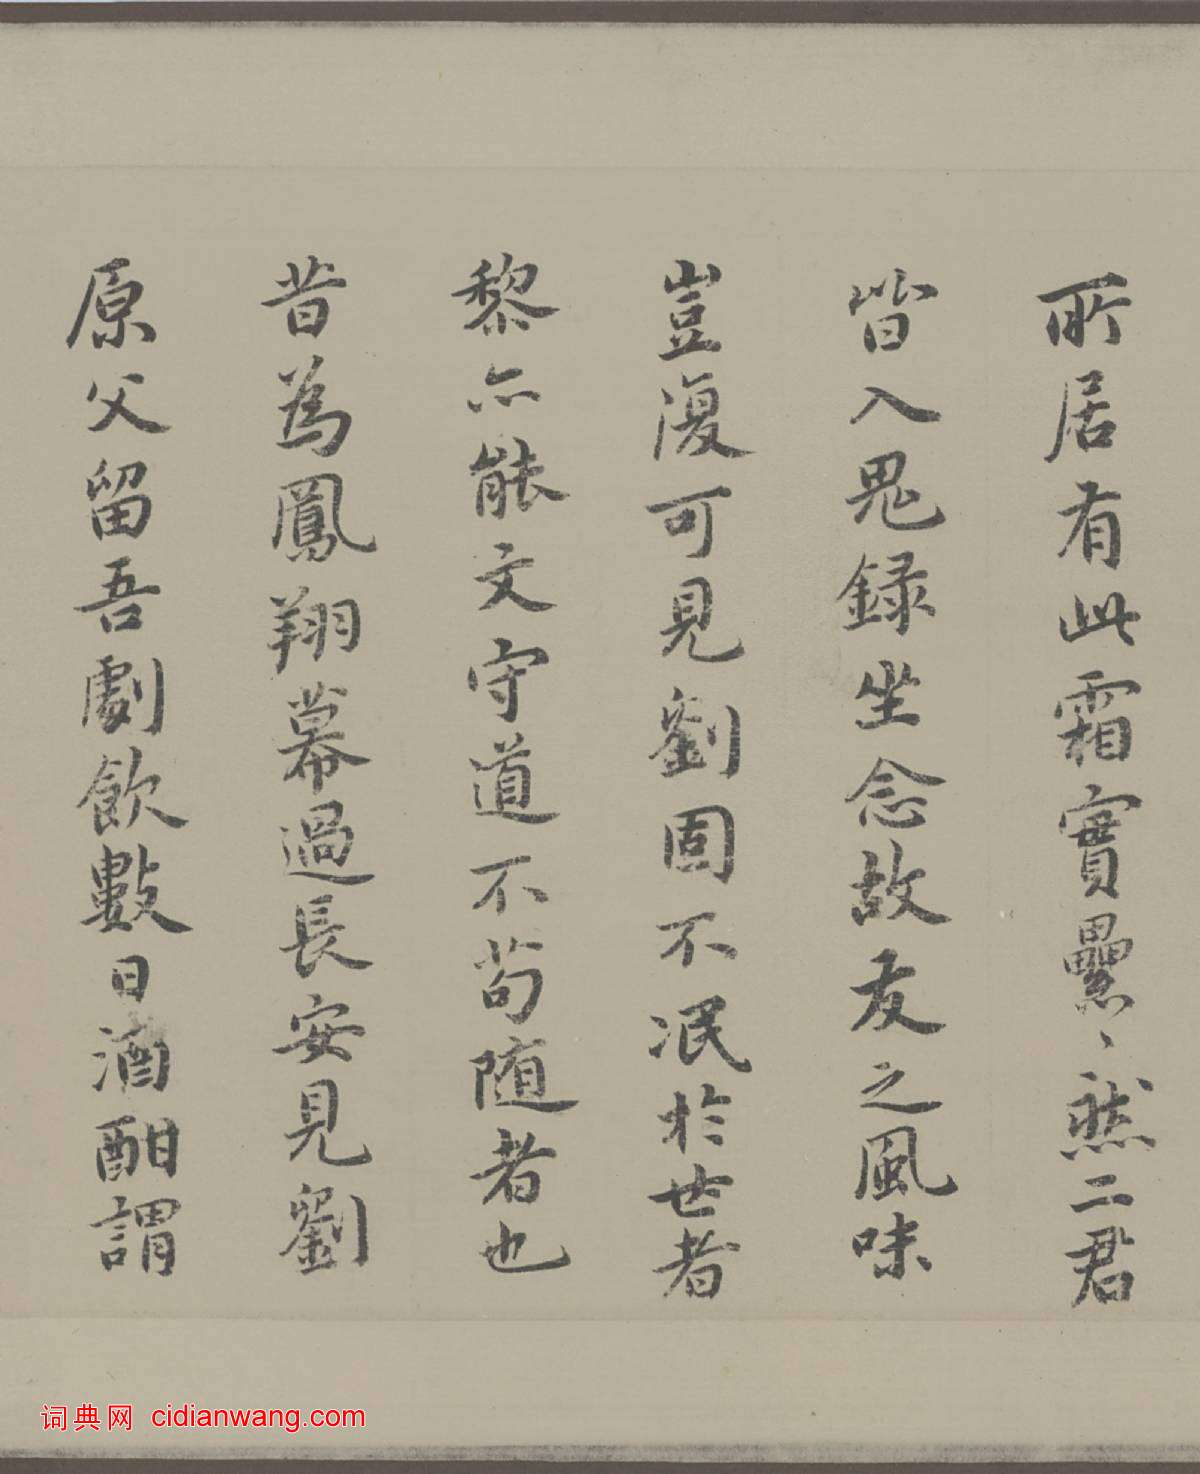 所居有此霜實纍〻然二君
皆入鬼録坐念故友之風味
豈復可見劉固不泯於世者
黎亦能文守道不苟随者也
昔為鳳翔幕過長安見劉
原父留吾劇飲數日酒酣謂
词典网 cidianwang.com